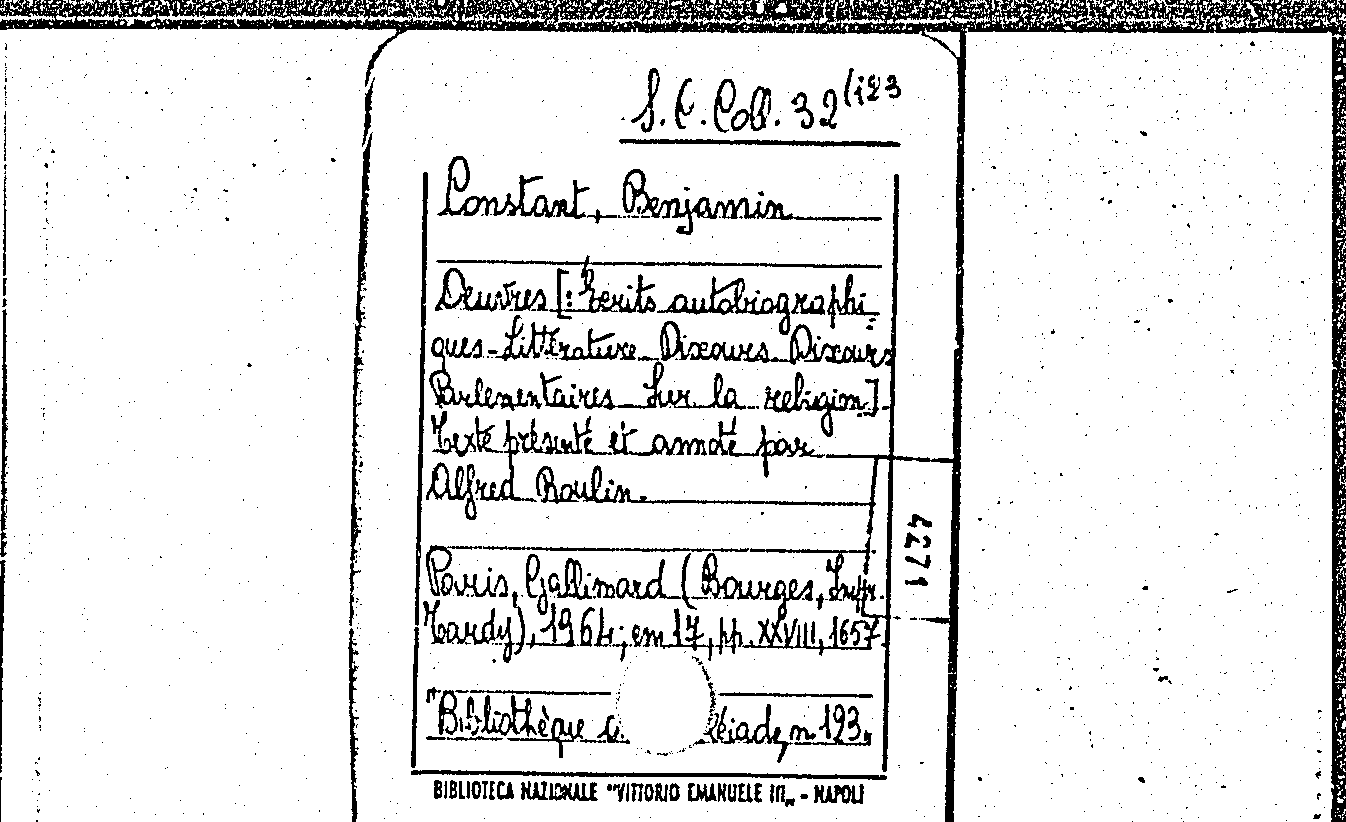 S.C. Coll. 32 (123
Constant, Benjamin
Oeuvres [: Écrits autobiographi=
ques - Littérature Discours Discours
Parlementaires Sur la religion].
Texte présenté et annoté par
Alfred Roulin.
Paris, Gallimard (Bourges, Impr.
Tardy), 1964; cm 17, pp. XXVIII, 1657.
"Bibliothèque léiade, n. 123.
BIBLIOTECA NAZIONALE "VITTORIO EMANUELE III„ - NAPOLI
4271